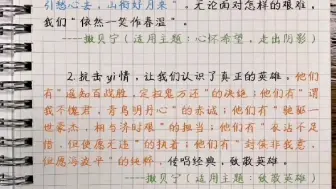 引愁心去，山衔好月来"。无论面对怎样的艰难，
我们"依然一笑作春温"。
----撒贝宁（适用主题：心怀希望，走出阴影）
2.抗击yi情，让我们认识了真正的英雄，他们
有"返知百战胜，定扫鬼方还"的决绝；他们有"谓
我不愧君，青鸟明丹心"的赤诚；他们有"驰驱一
世豪杰，相与济时艰"的担当；他们有"长沾不足
惜，但使愿无违"的执着；他们有"封侯非我意，
但愿海波平"的纯粹，传唱经典，致敬英雄。
----撒贝宁（适用主题：致敬英雄）